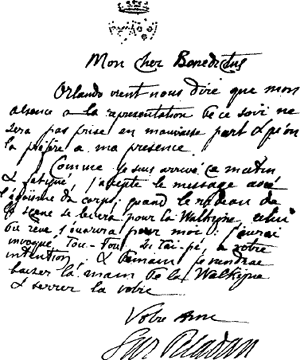 Mon cher Benedictus
Orlando vient nous dire que mon
absence a la representation de ce soir ne
sera pas prise en mauvaise part & qu'on
la préfère a ma presence.
Comme je suis arrivé ce matin
& fatigué, j'accepte le message avec
l'égoïsme du corps; quand le rideau de
la scène se lèvera pour la Walkyrie, celui
du rêve s'ouvrira pour moi: j'aurai
invoqué Tou-Tou Si Tai-pé, a votre
intention; & demain je viendrai
baiser la main de la Walkyrie
& serrer la votre
Votre
Sar Peladan